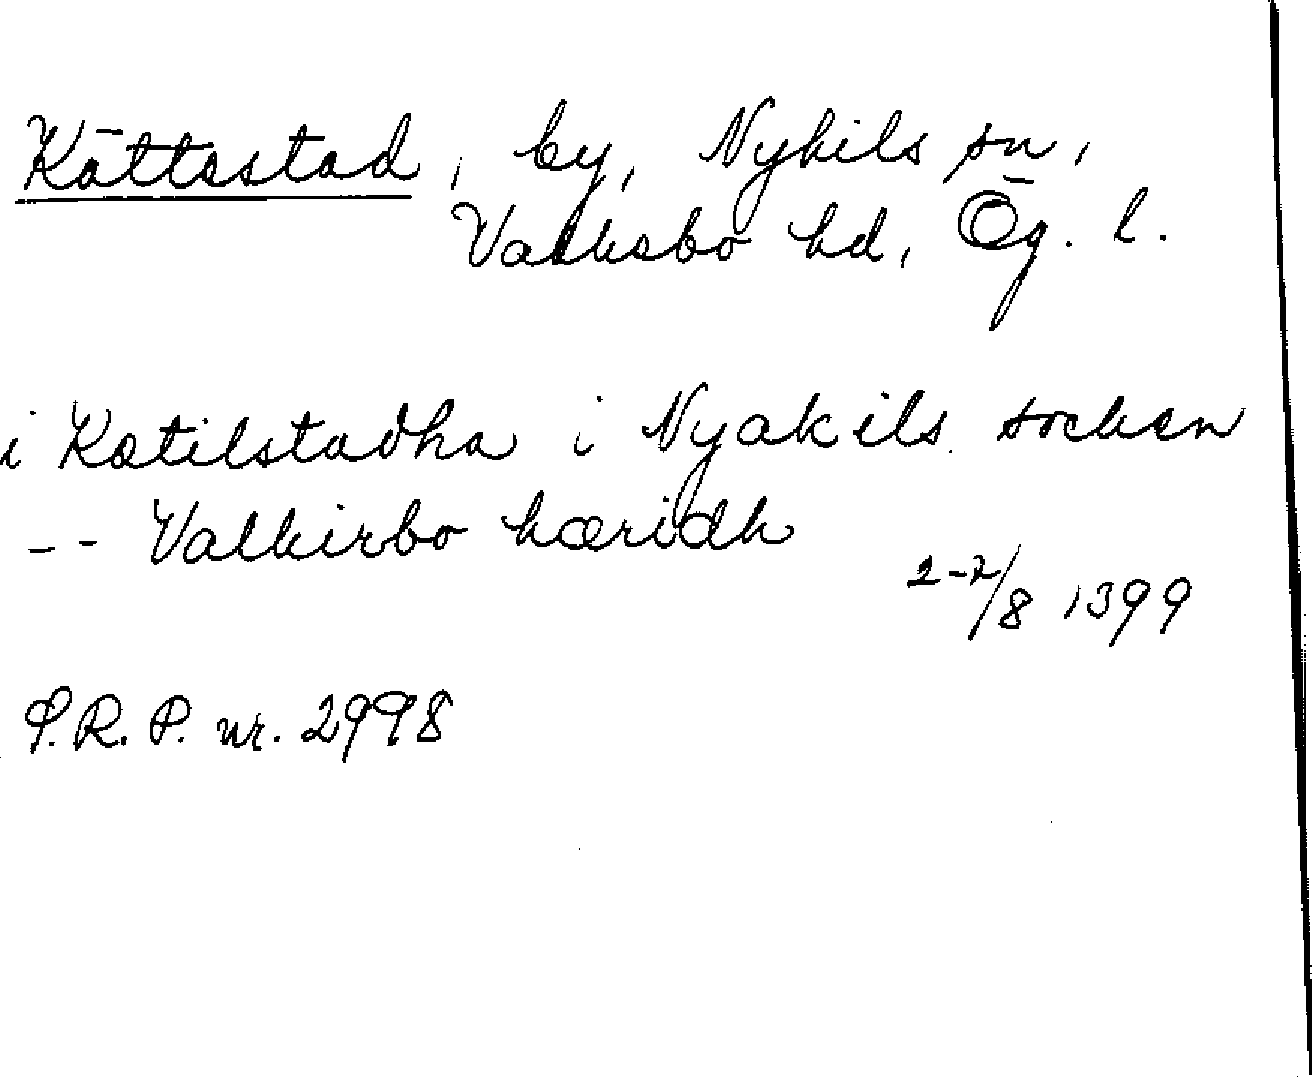 Kättestad, by, Nykils sn,
Valkebo hd, Ög. l.
i Kætilstadha i Nyakils socken
-- Valkirbo hæridh
2-7/8 1399
S.R.P. nr. 2998